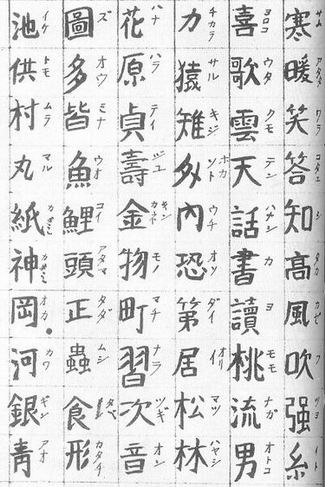 寒サム 暖アタタ 笑ワラ 答コタエ 知シ 高タカ 風カゼ 吹フ 强ツヨ 糸イト
喜ヨロコ 歌ウタ 雲クモ 天テン 話ハナシ 書カ 讀ヨ 桃モモ 流ナガ 男オトコ
力チカラ 猿サル 雉キジ 外ホカソト 內ウチ 恐オソ 第ダイ 居オリ 松マツ 林ハヤシ
花ハナ 原ハラ 貞テイ 壽ジュ 金キンカネ 物モノ 町マチ 習ナラ 次ツギ 音オン
圖ズ 多オウ 皆ミナ 魚ウオ 鯉コイ 頭アタマ 正タダ 蟲ムシ 食 形カタチ
池イケ 供トモ 村ムラ 丸マル 紙 神 岡オカ 河カワ 銀ギン 靑アオ